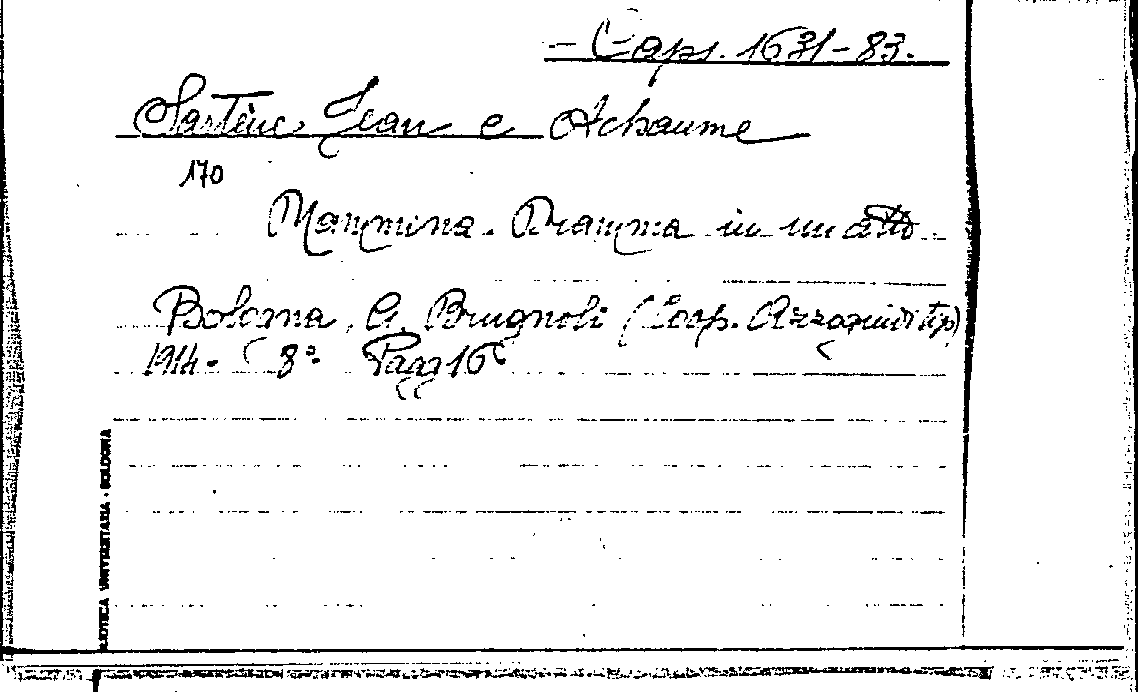 - Caps. 1631-83.
Sartène Jean e Achaume
170
Mammina. Dramma in un atto.
Bologna, G. Brugnoli (Coop. Azzoguidi tip)
1914. 8°. Pagg 16
BIBLIOTECA UNIVERSITARIA - BOLOGNA